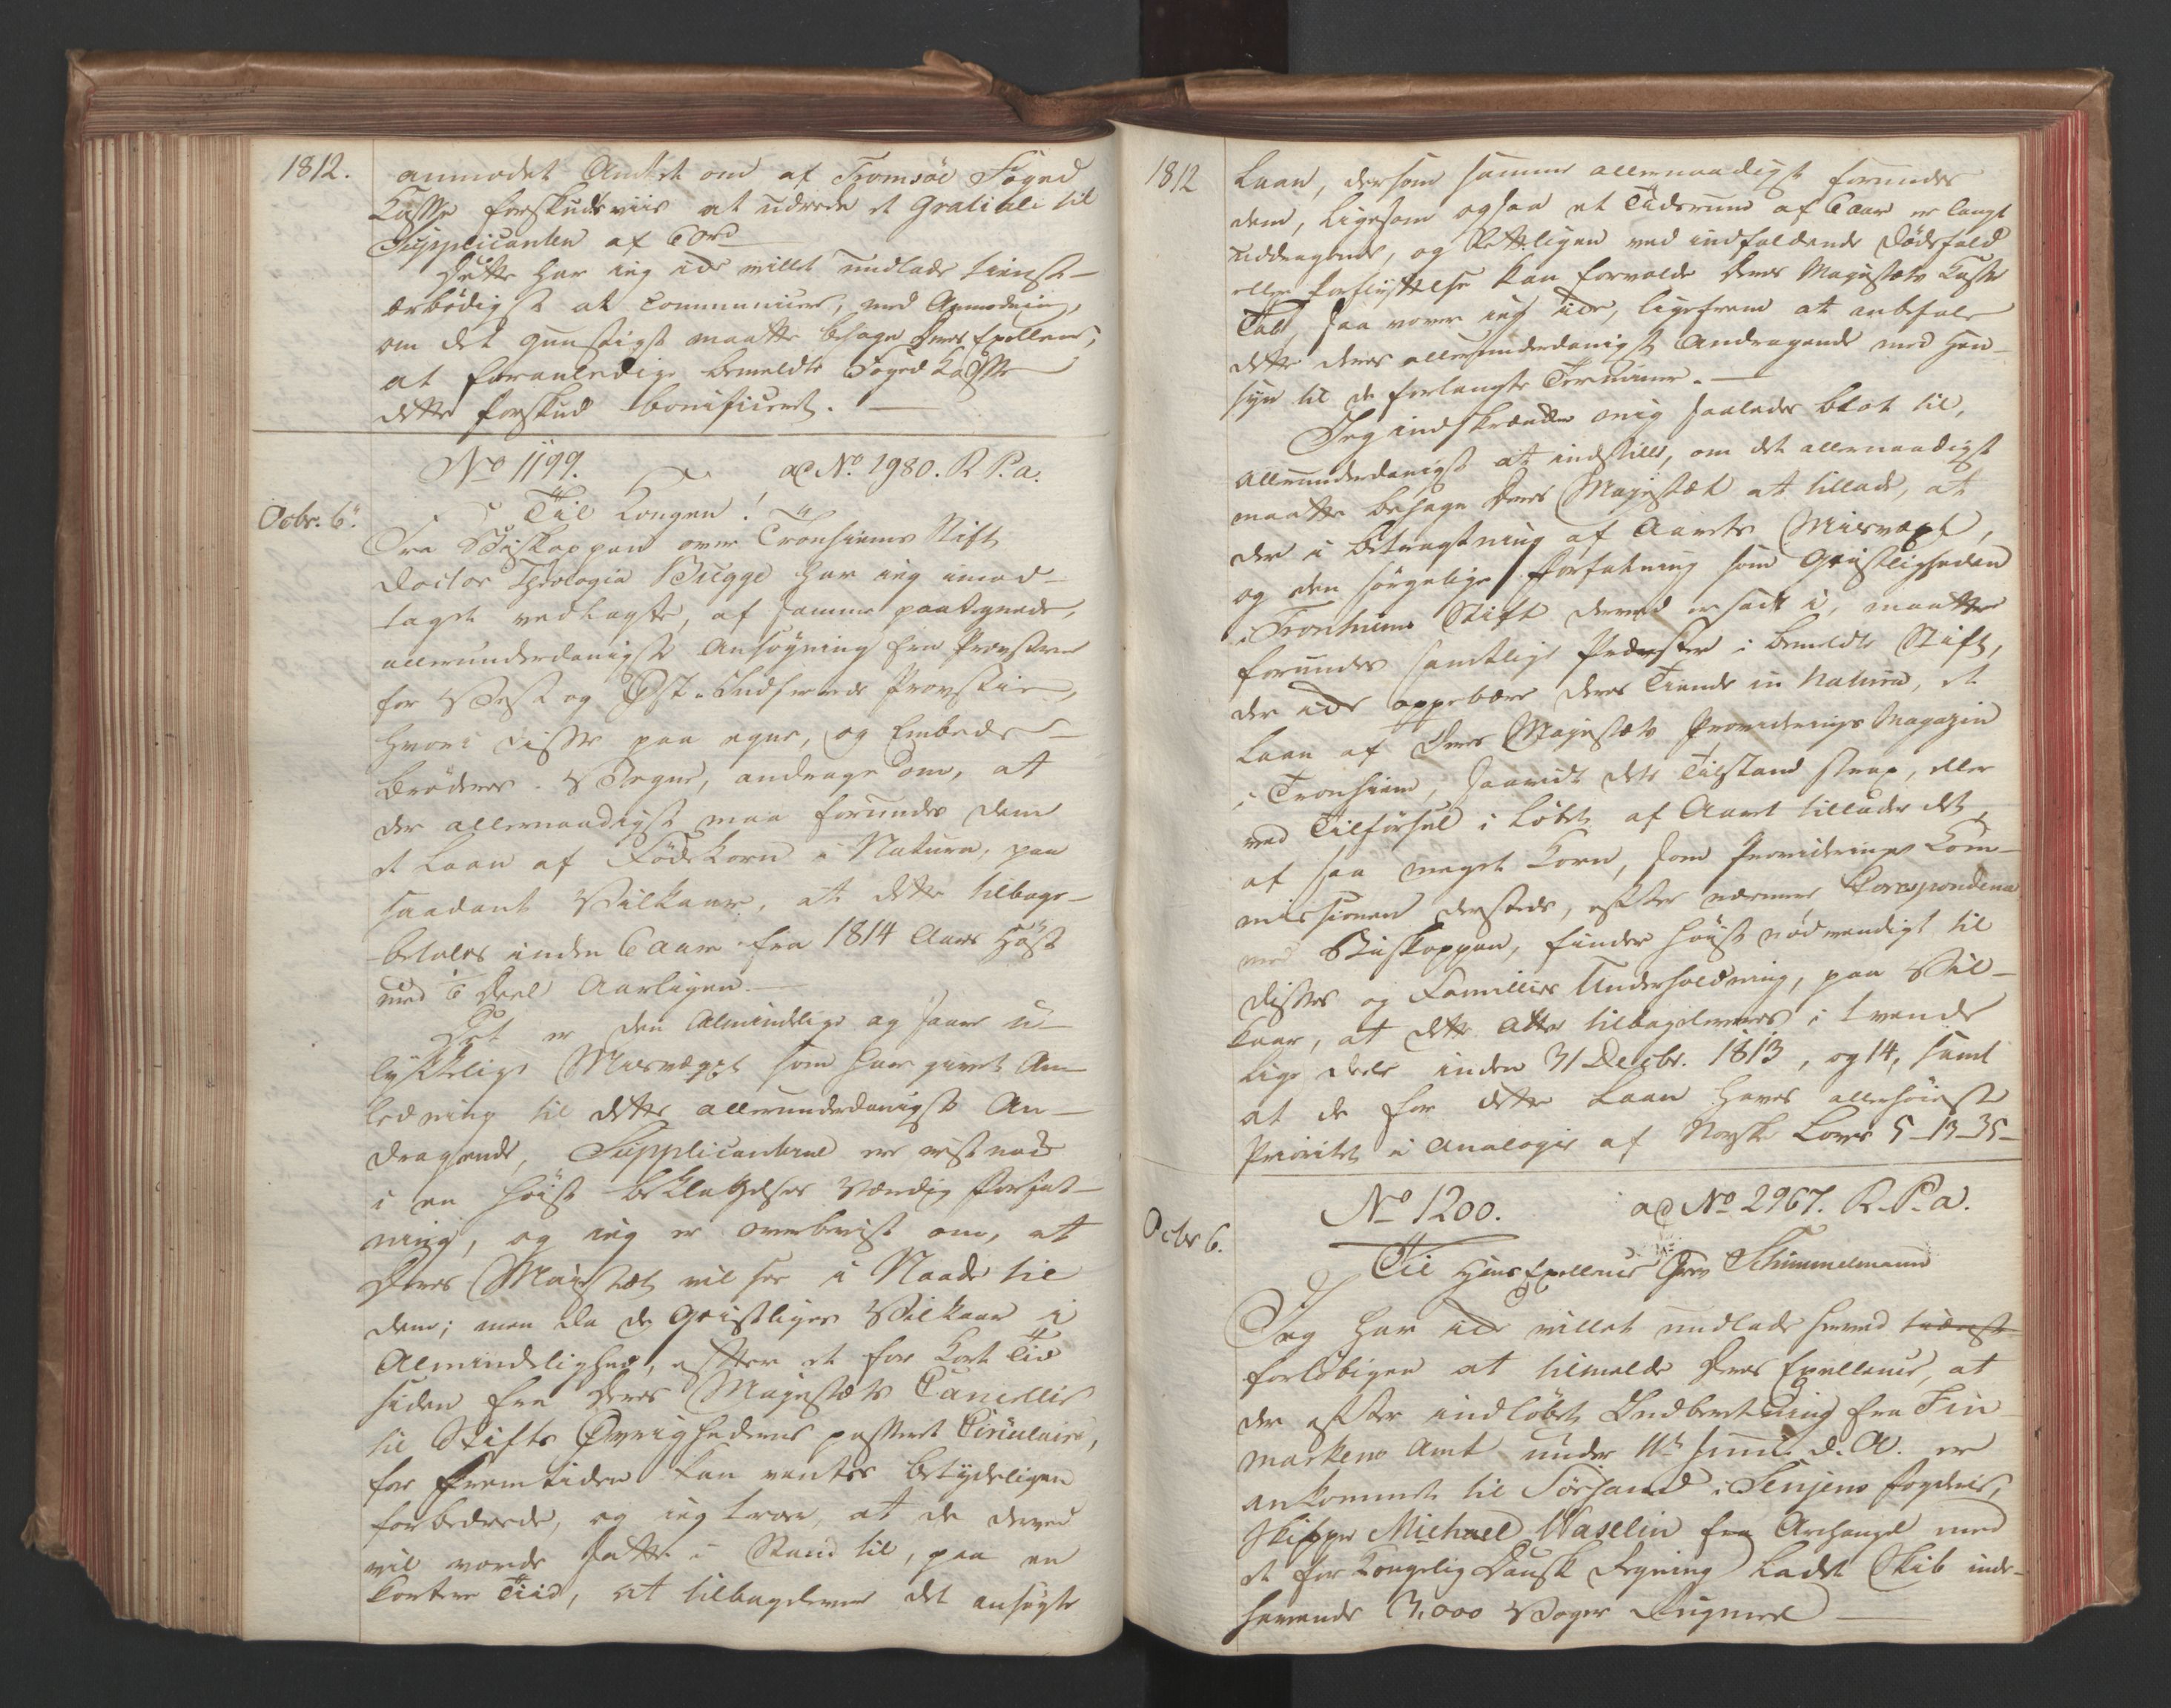 1812.
anmodet Amtet om af Tromsöe Foged
Casse forskudsviis at udrede et Gratiale til
Supplicanten af 60rd
Dette har ieg icke villet undlade tienst-
ærbödigst at communicere, med Anmodning,
om det gunstigst maatte behage Deres Excellence,
at foranledige bemeldte Foged Casse
dette forskud bonificeret. —
No 1199. ad No. 1980. R. P. a.
Octbr. 6.
Til Kongen!
Fra Biskoppen over Tronhiems Stift
Doctor Theologia Bugge har ieg imod-
taget vedlagte, af samme paategnede,
allerunderdanigste Ansögning fra Provsterne
for Vest og Öst-Inderöens Provstier,
hvori disse paa egne, og Embeds-
Brödres Vegne, andrage om, at
der allernaadigst maa forundes dem
et Laan af Födekorn in Natura, paa
saadant Vilkaar, at dette tilbage-
betales inden 6 Aar fra 1814 Aars Höst
med 1/6 Deel Aarligen. —
Det er den Almindelige og saare u-
lykkelige Misvæxt som har givet An-
ledning til dette allerunderdanigste An-
dragende, Supplicanterne ere vistnok
i en höist beklagelses værdig Forfat-
ning, og ieg er overbeviist om, at
Deres Majestæt vil see i Naade til
dem; men da de Geistliges Vilkaar i
Almindelighed, efter et for kort Tid
siden fra Deres Majestæts Cancellie
til Stifts Øvrighederne passeret Circulaire,
for Fremtiden kan ventes betydeligen
forbedrede, og ieg troer, at de derved
vil vorde satte i Stand til, paa en
kortere Tiid, at tilbagelevere det ansögte
1812
Laan, dersom samme allernaadigst forundes
dem, ligesom ogsaa et Tidsrum af 6 Aar er langt
uddragende, og lettelig en ved indfaldende Dödsfald
eller Forflyttelse kan forvolde Deres Majestæts Casse
Tab, saa vover ieg icke, ligefrem at anbefale
dette deres allerunderdanigste Andragende med Hen-
syn til de forlangte Terminer. —
Jeg indskrænker mig saaledes blot til,
allerunderdanigst at indstille, om det allernaadigst
maatte behage Deres Majestæt at tillade, at
der i Betragtning af Aarets Misvæxt,
og den sörgelige Forfatning som Geistligheden
i Tronhiems Stift derved er sadt i, maatte
forundes samtlige Præster i bemeldte Stift,
der icke oppebære deres Tiende in Natura, et
Laan af Deres Majestæts Provideringsmagazin
i Tronhiem, saavidt dets Tilstand strax, eller
ved Tilförsel i Löbet af Aaret tillader det,
af saa meget Korn, som Providerings Com-
missionen dersteds, efter nærmere Correspondence
med Biskoppen, finder höist nödvendigt til
disses og Familliers Underholdning, paa Vil-
kaar, at dette atter tilbageleveres i tvende
lige Dele inden 31 Decbr. 1813, og 14, samt
at de for dette Laan haves allerhöieste
Prioritet i Analogie af Norske Lovs 5-13-35-
No 1200. ad No 2967. R. P. a.
Octbr 6.
Til Hans Excellence Grev Schimmelmann
Jeg har icke villet undlade herved tienst-
forlöbigen at tilmelde Deres Excellence, at
der efter indlöbet Indberetning fra Fin-
markens Amt under 11te Juni d. A. er
ankommet til Sörsand i Senjens Fogderie,
Skipper Michael Waselin fra Archangel med
et for Kongelig Dansk Regning ladet Skib inde-
havende 3,000 Voger Rugmel —